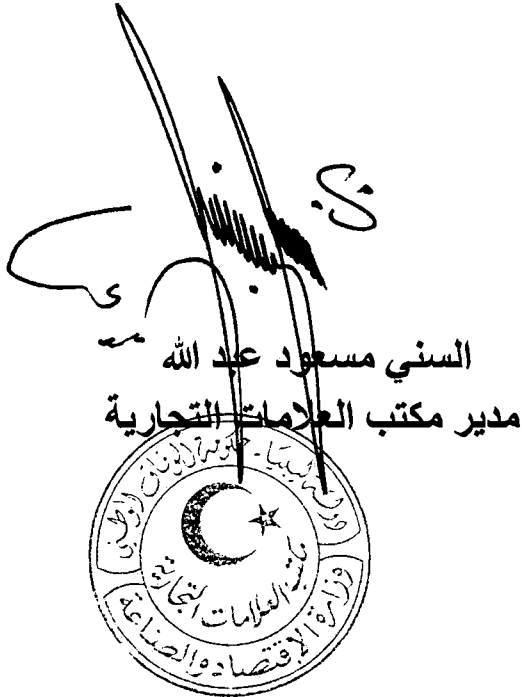 السني مسعود عبد الله
مدير مكتب العلامات التجارية
دولة ليبيا - حكومة الوفاق الوطني
مكتب العلامات التجارية
وزارة الإقتصاد والصناعة